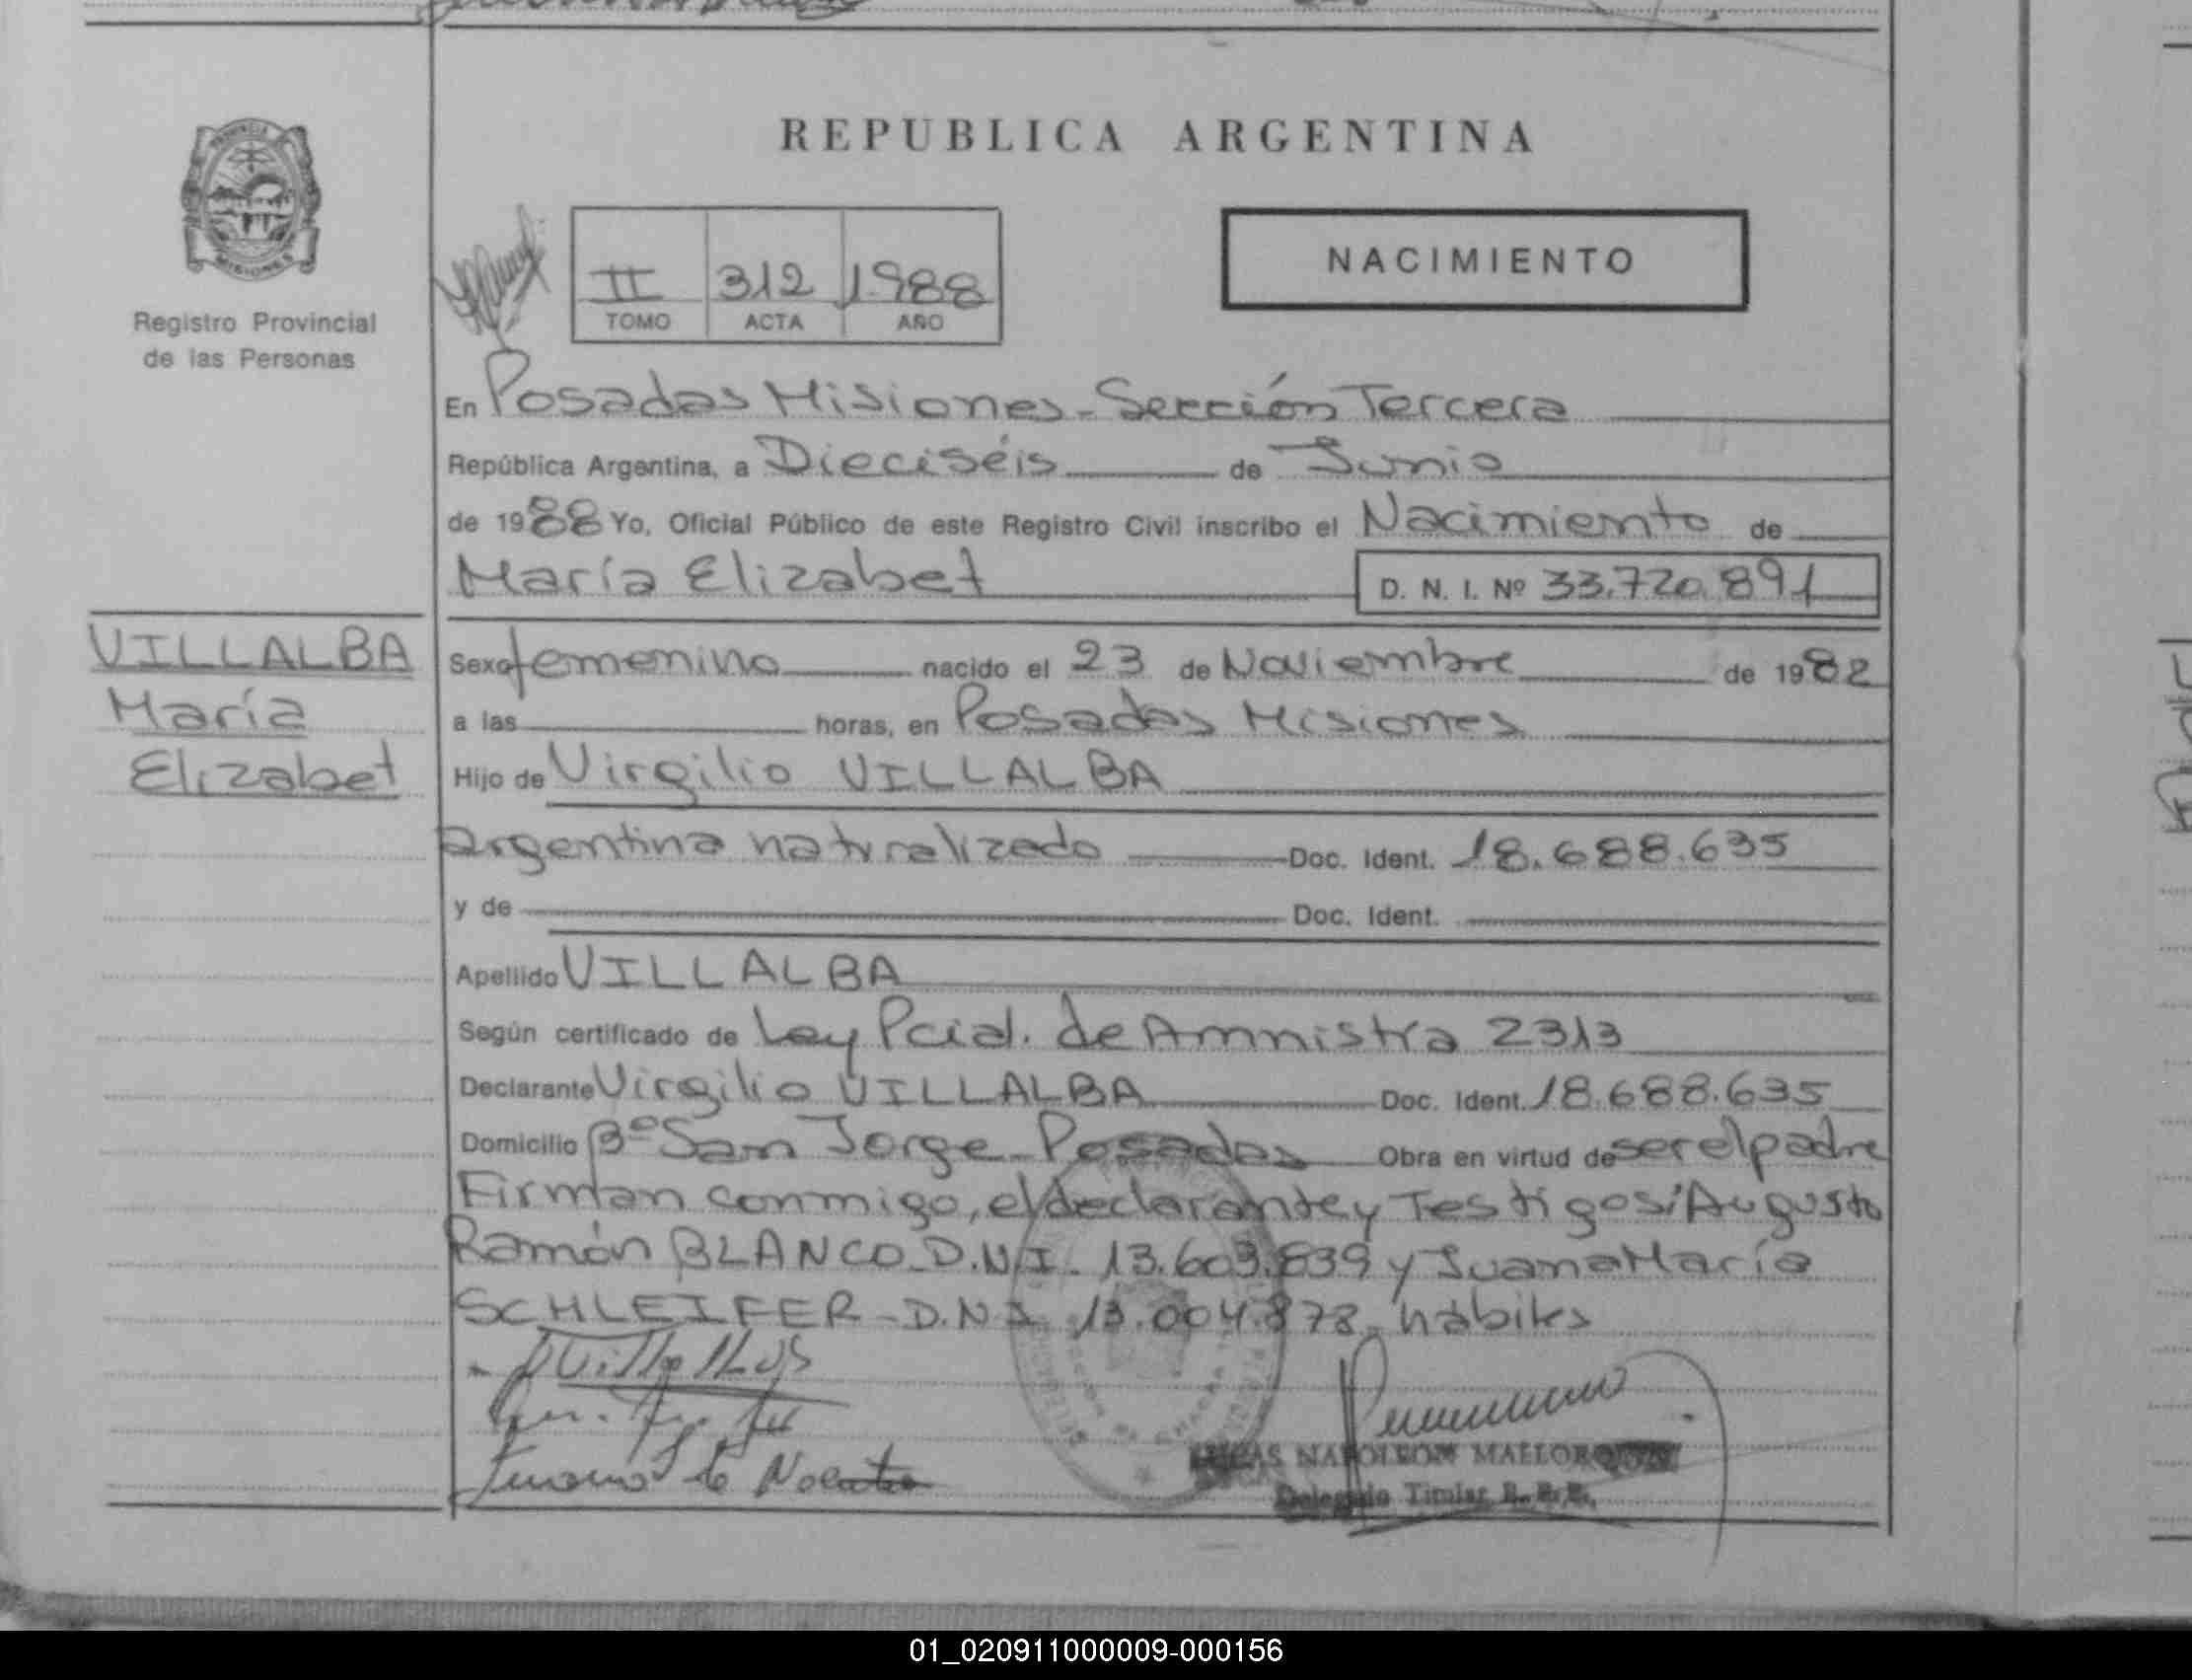 REPUBLICA ARGENTINA
PROVINCIA
MISIONES
Registro Provincial
de las Personas
II 312 1988
TOMO ACTA AÑO
NACIMIENTO
En Posadas Misiones - Sección Tercera
República Argentina, a Dieciséis de Junio
de 1988 Yo, Oficial Público de este Registro Civil inscribo el Nacimiento de
María Elizabet D. N. I. Nº 33.720.891
VILLALBA
María
Elizabet
Sexo femenino nacido el 23 de Noviembre de 1982
a las horas, en Posadas Misiones
Hijo de Virgilio VILLALBA
argentino naturalizado Doc. Ident. 18.688.635
y de Doc. Ident.
Apellido VILLALBA
Según certificado de Ley Pcial. de Amnistía 2313
Declarante Virgilio VILLALBA Doc. Ident. 18.688.635
Domicilio Bº San Jorge - Posadas Obra en virtud de ser el padre
Firman conmigo, el declarante y Testigos: Augusto
Ramón BLANCO - D.N.I. 13.603.839 y Juana María
SCHLEIFER - D.N.I. 13.004.878, hábiles
LUCAS NAPOLEON
Delegado Titular R. P. P.
01_020911000009-000156